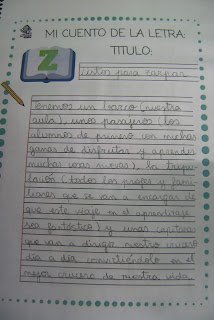 MI CUENTO DE LA LETRA:
TITULO:
Z
Listos para zarpar
Tenemos un barco (nuestra
aula), unos pasajeros (los
alumnos de primero con muchas
ganas de disfrutar y aprender
muchas cosas nuevas), la tripu-
lación (todos los profes y fami-
liares que se van a encargar de
que este viaje en el aprendizaje
sea fantástico) y unas capitanas
que van a dirigir nuestro crucero
día a día convirtiéndolo en el
mejor crucero de nuestra vida.